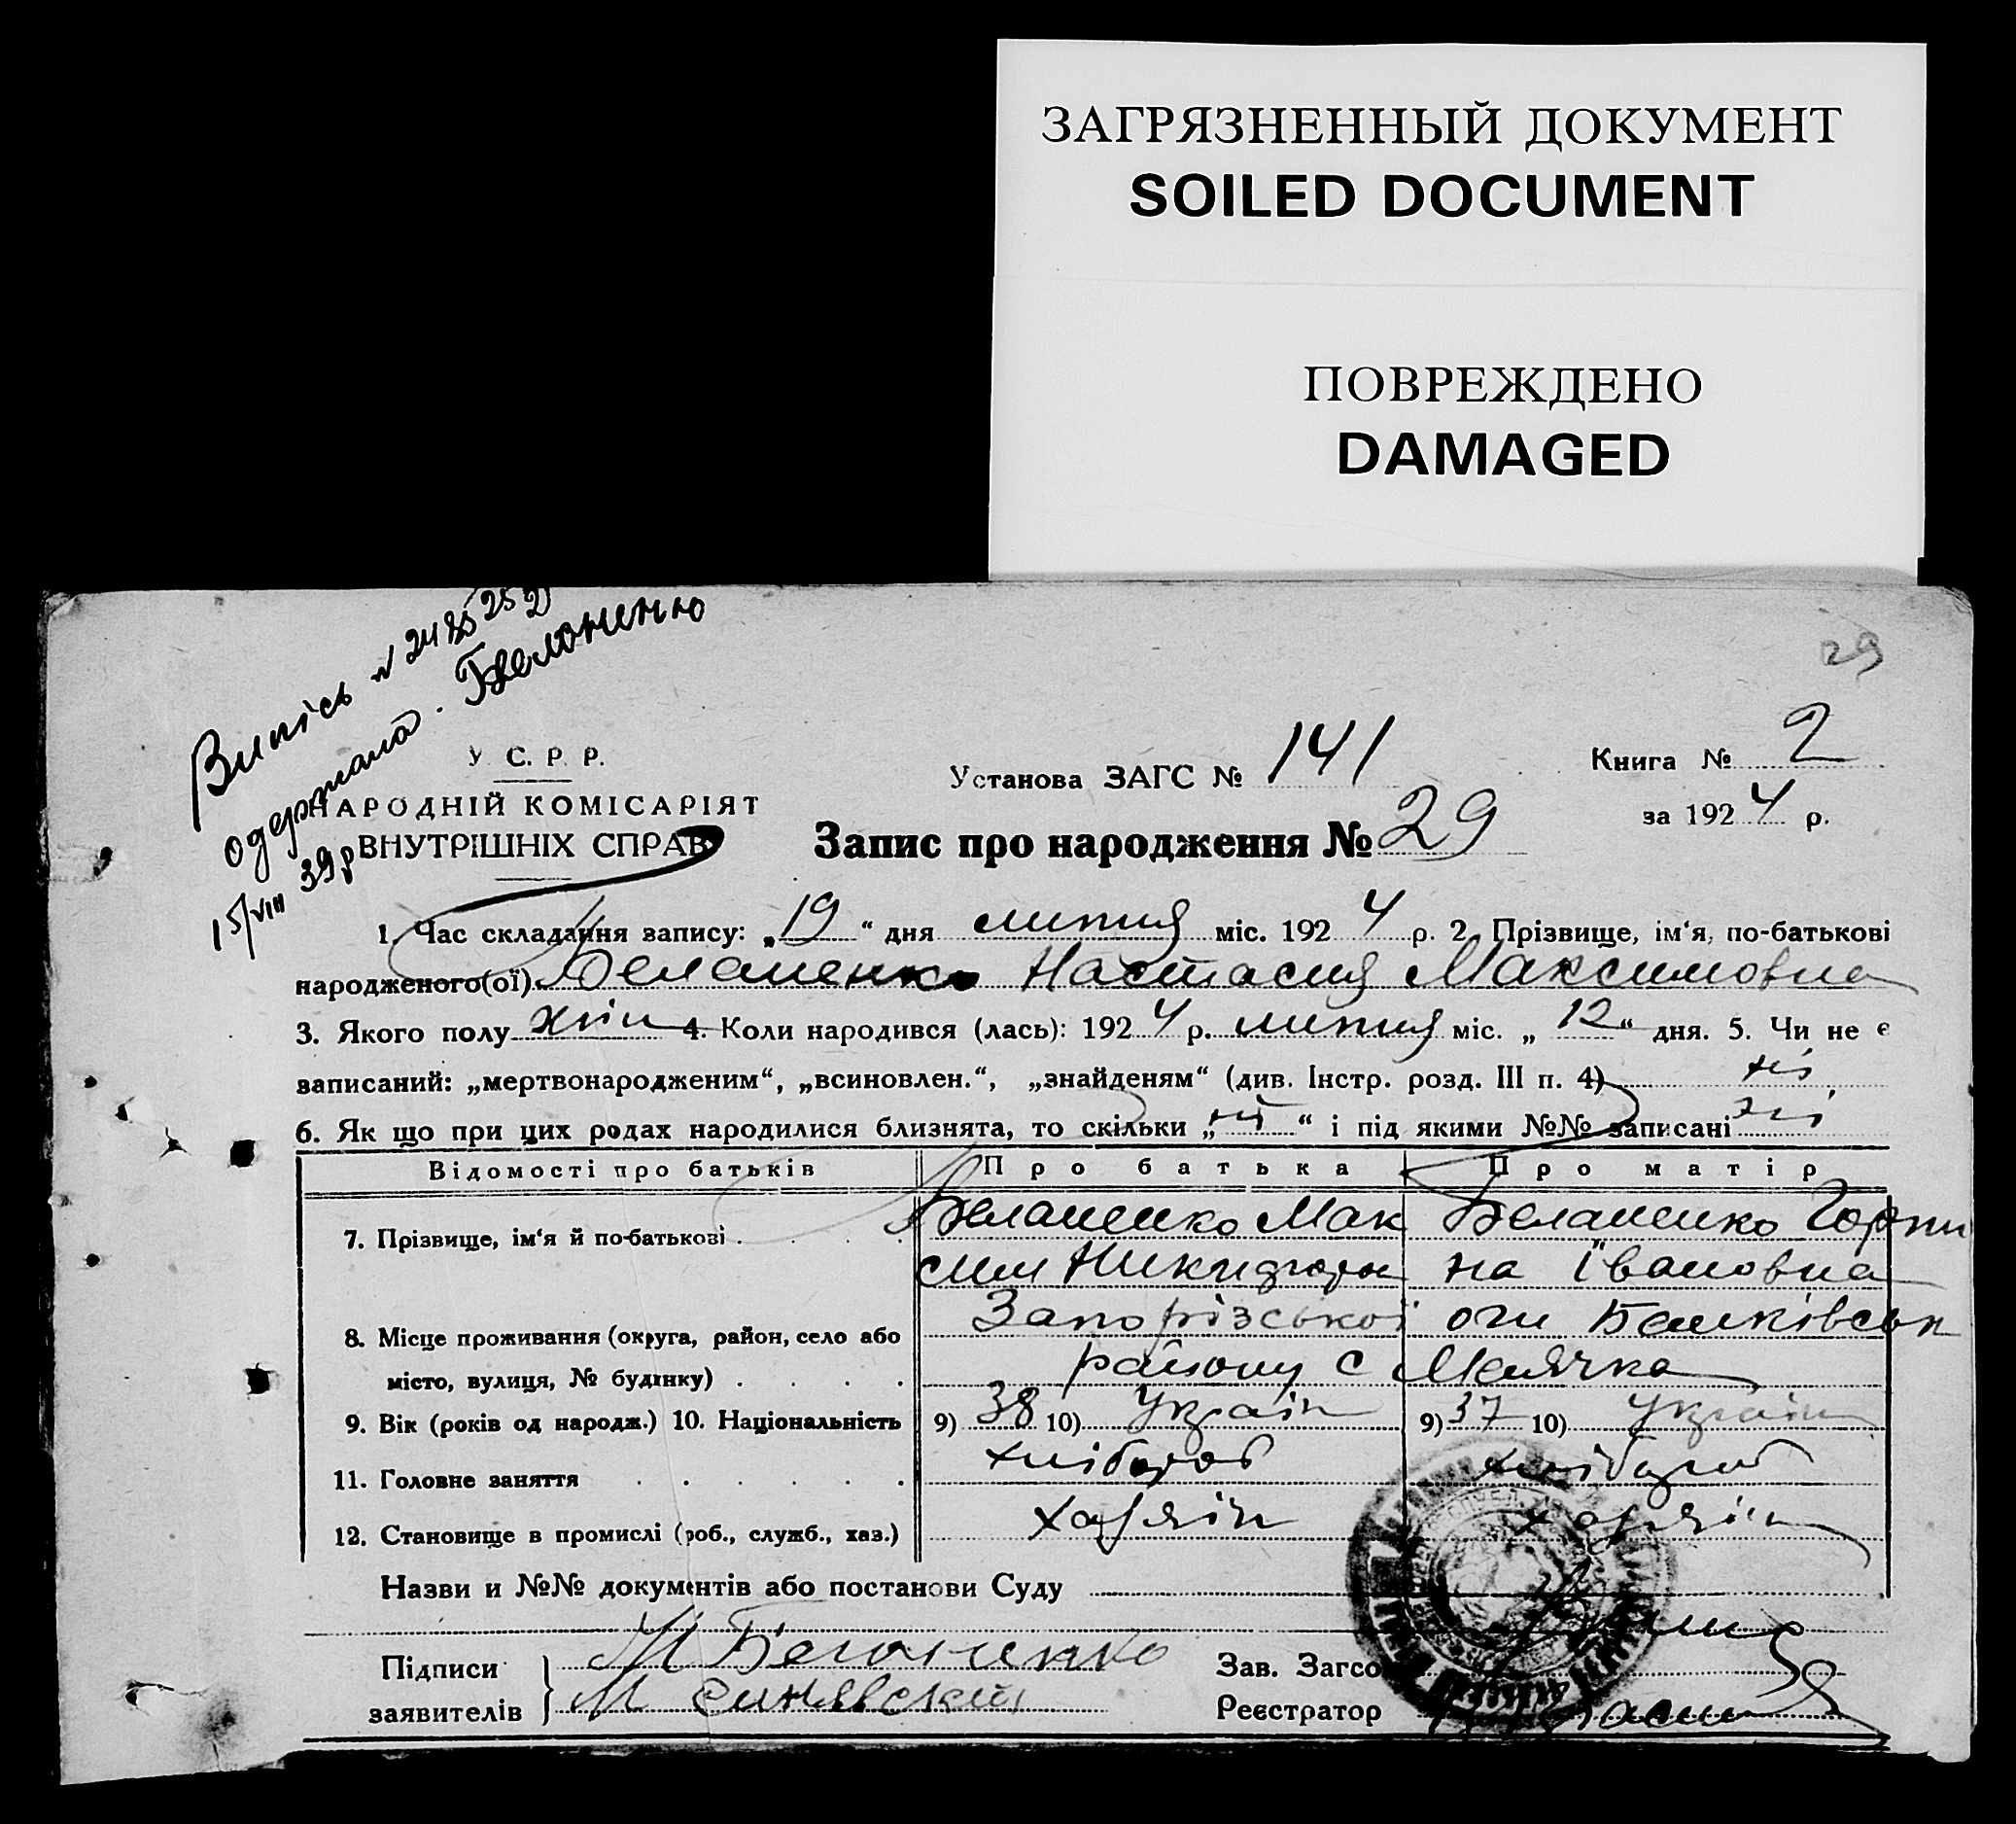 ЗАГРЯЗНЕННЫЙ ДОКУМЕНТ
SOILED DOCUMENT
ПОВРЕЖДЕНО
DAMAGED
29
Випісь
одержана
15/VIII 39р
У С. Р. Р.
НАРОДНІЙ КОМІСАРІЯТ
ВНУТРІШНІХ СПРАВ
Установа ЗАГС № 141
Книга № 2
за 1924 р.
Запис про народження № 29
1. Час складання запису: „19“ дня липня міс. 1924 р. 2. Прізвище, ім‘я, по-батькові
народженого(ої) Беланенко Настасия Максимовна
3. Якого полу жін 4. Коли народився (лась): 1924 р. липня міс. „12“ дня. 5. Чи не є
записаний: „мертвонародженим“, „всиновлен.“, „знайденям“ (див. Інстр. розд. III п. 4) ні
6. Як що при цих родах народилися близнята, то скільки „ні“ і під якими №№ записані ні
Відомості про батьків Про батька Про матір
7. Прізвище, ім‘я й по-батькові . . . . Беланенко Мак Беланенко Горпи
сим на Івановна
8. Місце проживання (округа, район, село або Запорізської окн
місто, вулиця, № будинку) . . . . району с Маячка
9. Вік (років од народж.) 10. Національність 9) 38 10) Україн 9) 37 10) Україн
11. Головне заняття . . . . . . хлібороб хлібороб
12. Становище в промислі (роб., служб., хаз.) хазяїн хазяїн
Назви и №№ документів або постанови Суду
Підписи М Белоненко Зав. Загсо
заявителів М Синявский Реєстратор